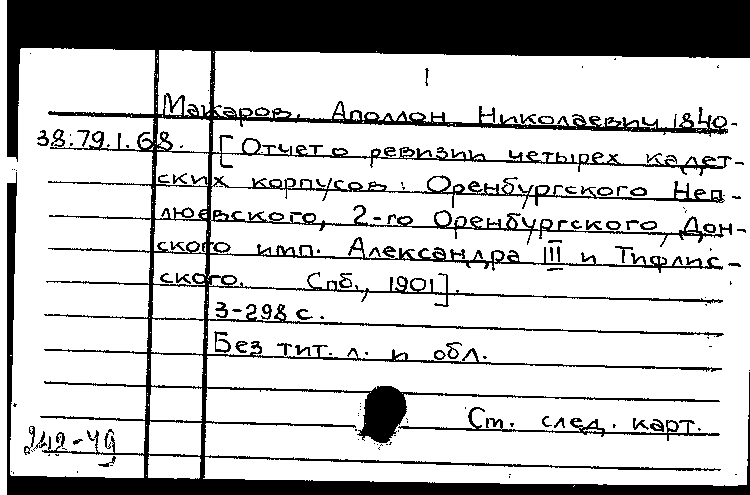 1
Макаров, Аполлон Николаевич, 1840-
38.79.1.68. [Отчет о ревизии четырех кадет-
ских корпусов: Оренбургского Неп-
люевского, 2-го Оренбургского, Дон-
ского имп. Александра III и Тифлис-
ского. Спб., 1901].
3-298 с.
Без тит. л. и обл.
Ст. след. карт.
242-49